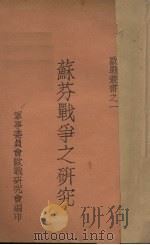 歐戰叢書之一
蘇芬戰爭之研究
軍事委員會歐戰研究會編印